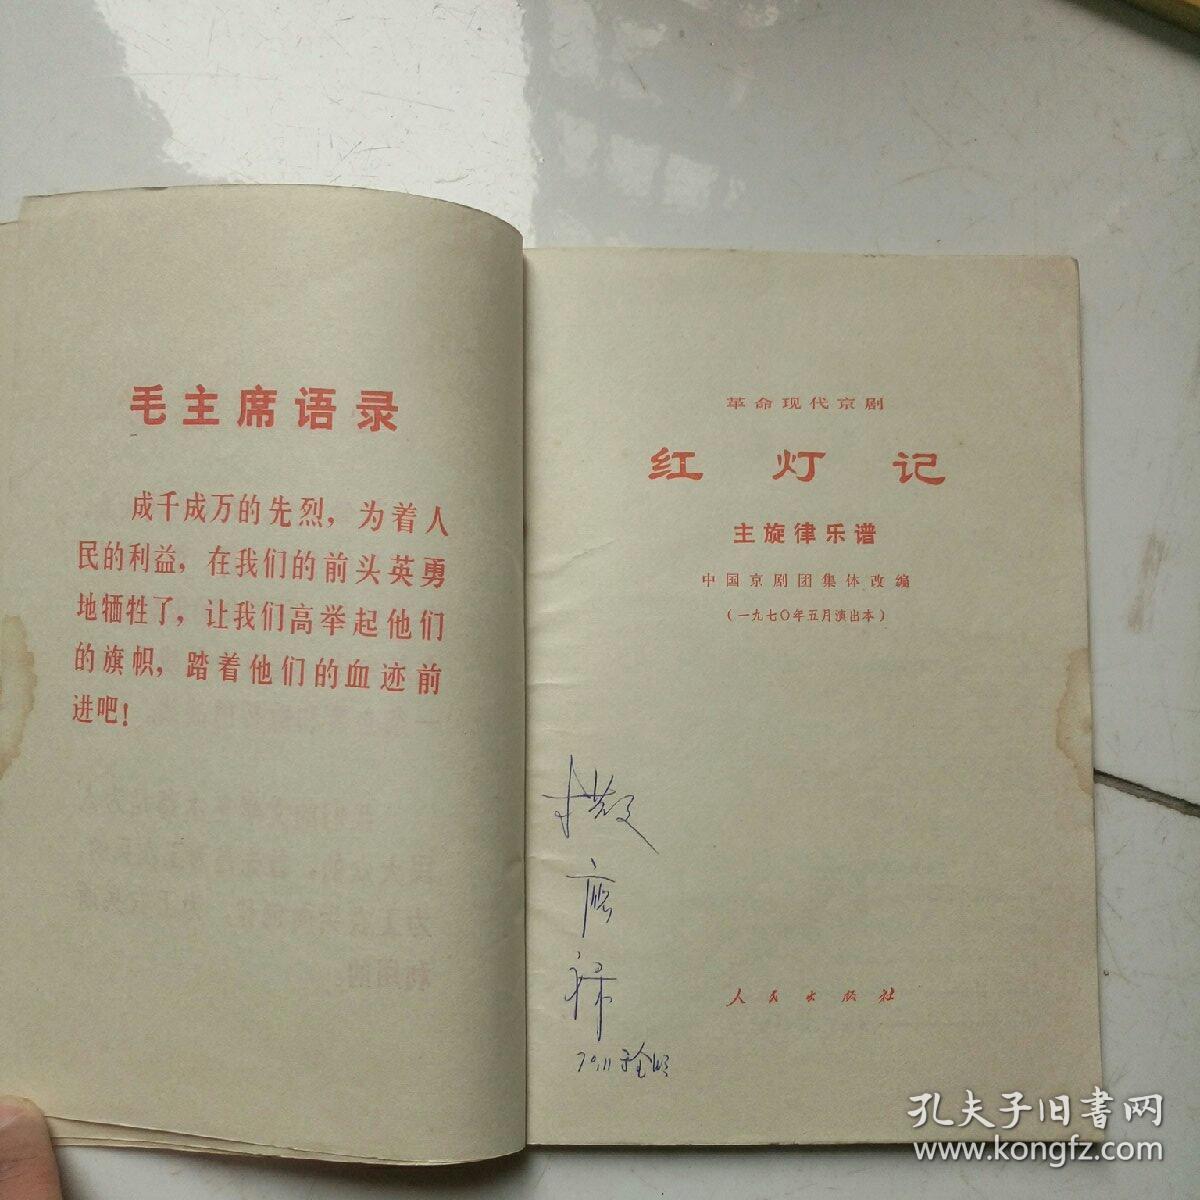 毛主席语录
成千成万的先烈，为着人
民的利益，在我们的前头英勇
地牺牲了，让我们高举起他们
的旗帜，踏着他们的血迹前
进吧！
革命现代京剧
红灯记
主旋律乐谱
中国京剧团集体改编
（一九七〇年五月演出本）
人民出版社
孔夫子旧书网
www.kongfz.com